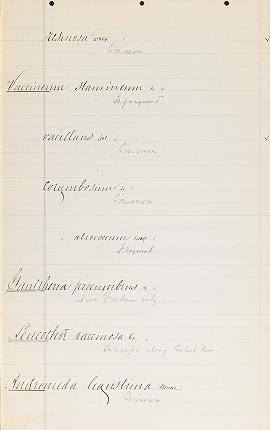 resinosa
Common
Vaccinium stamineum L.
Infrequent
vacillans Sol.
Common
corymbosum L.
Common
" atrococcum Gray
Frequent
Gaultheria procumbens L.
Near only
Leucothoë racemosa Gr.
Swamps along
Andromeda ligustrina Muhl.
Common